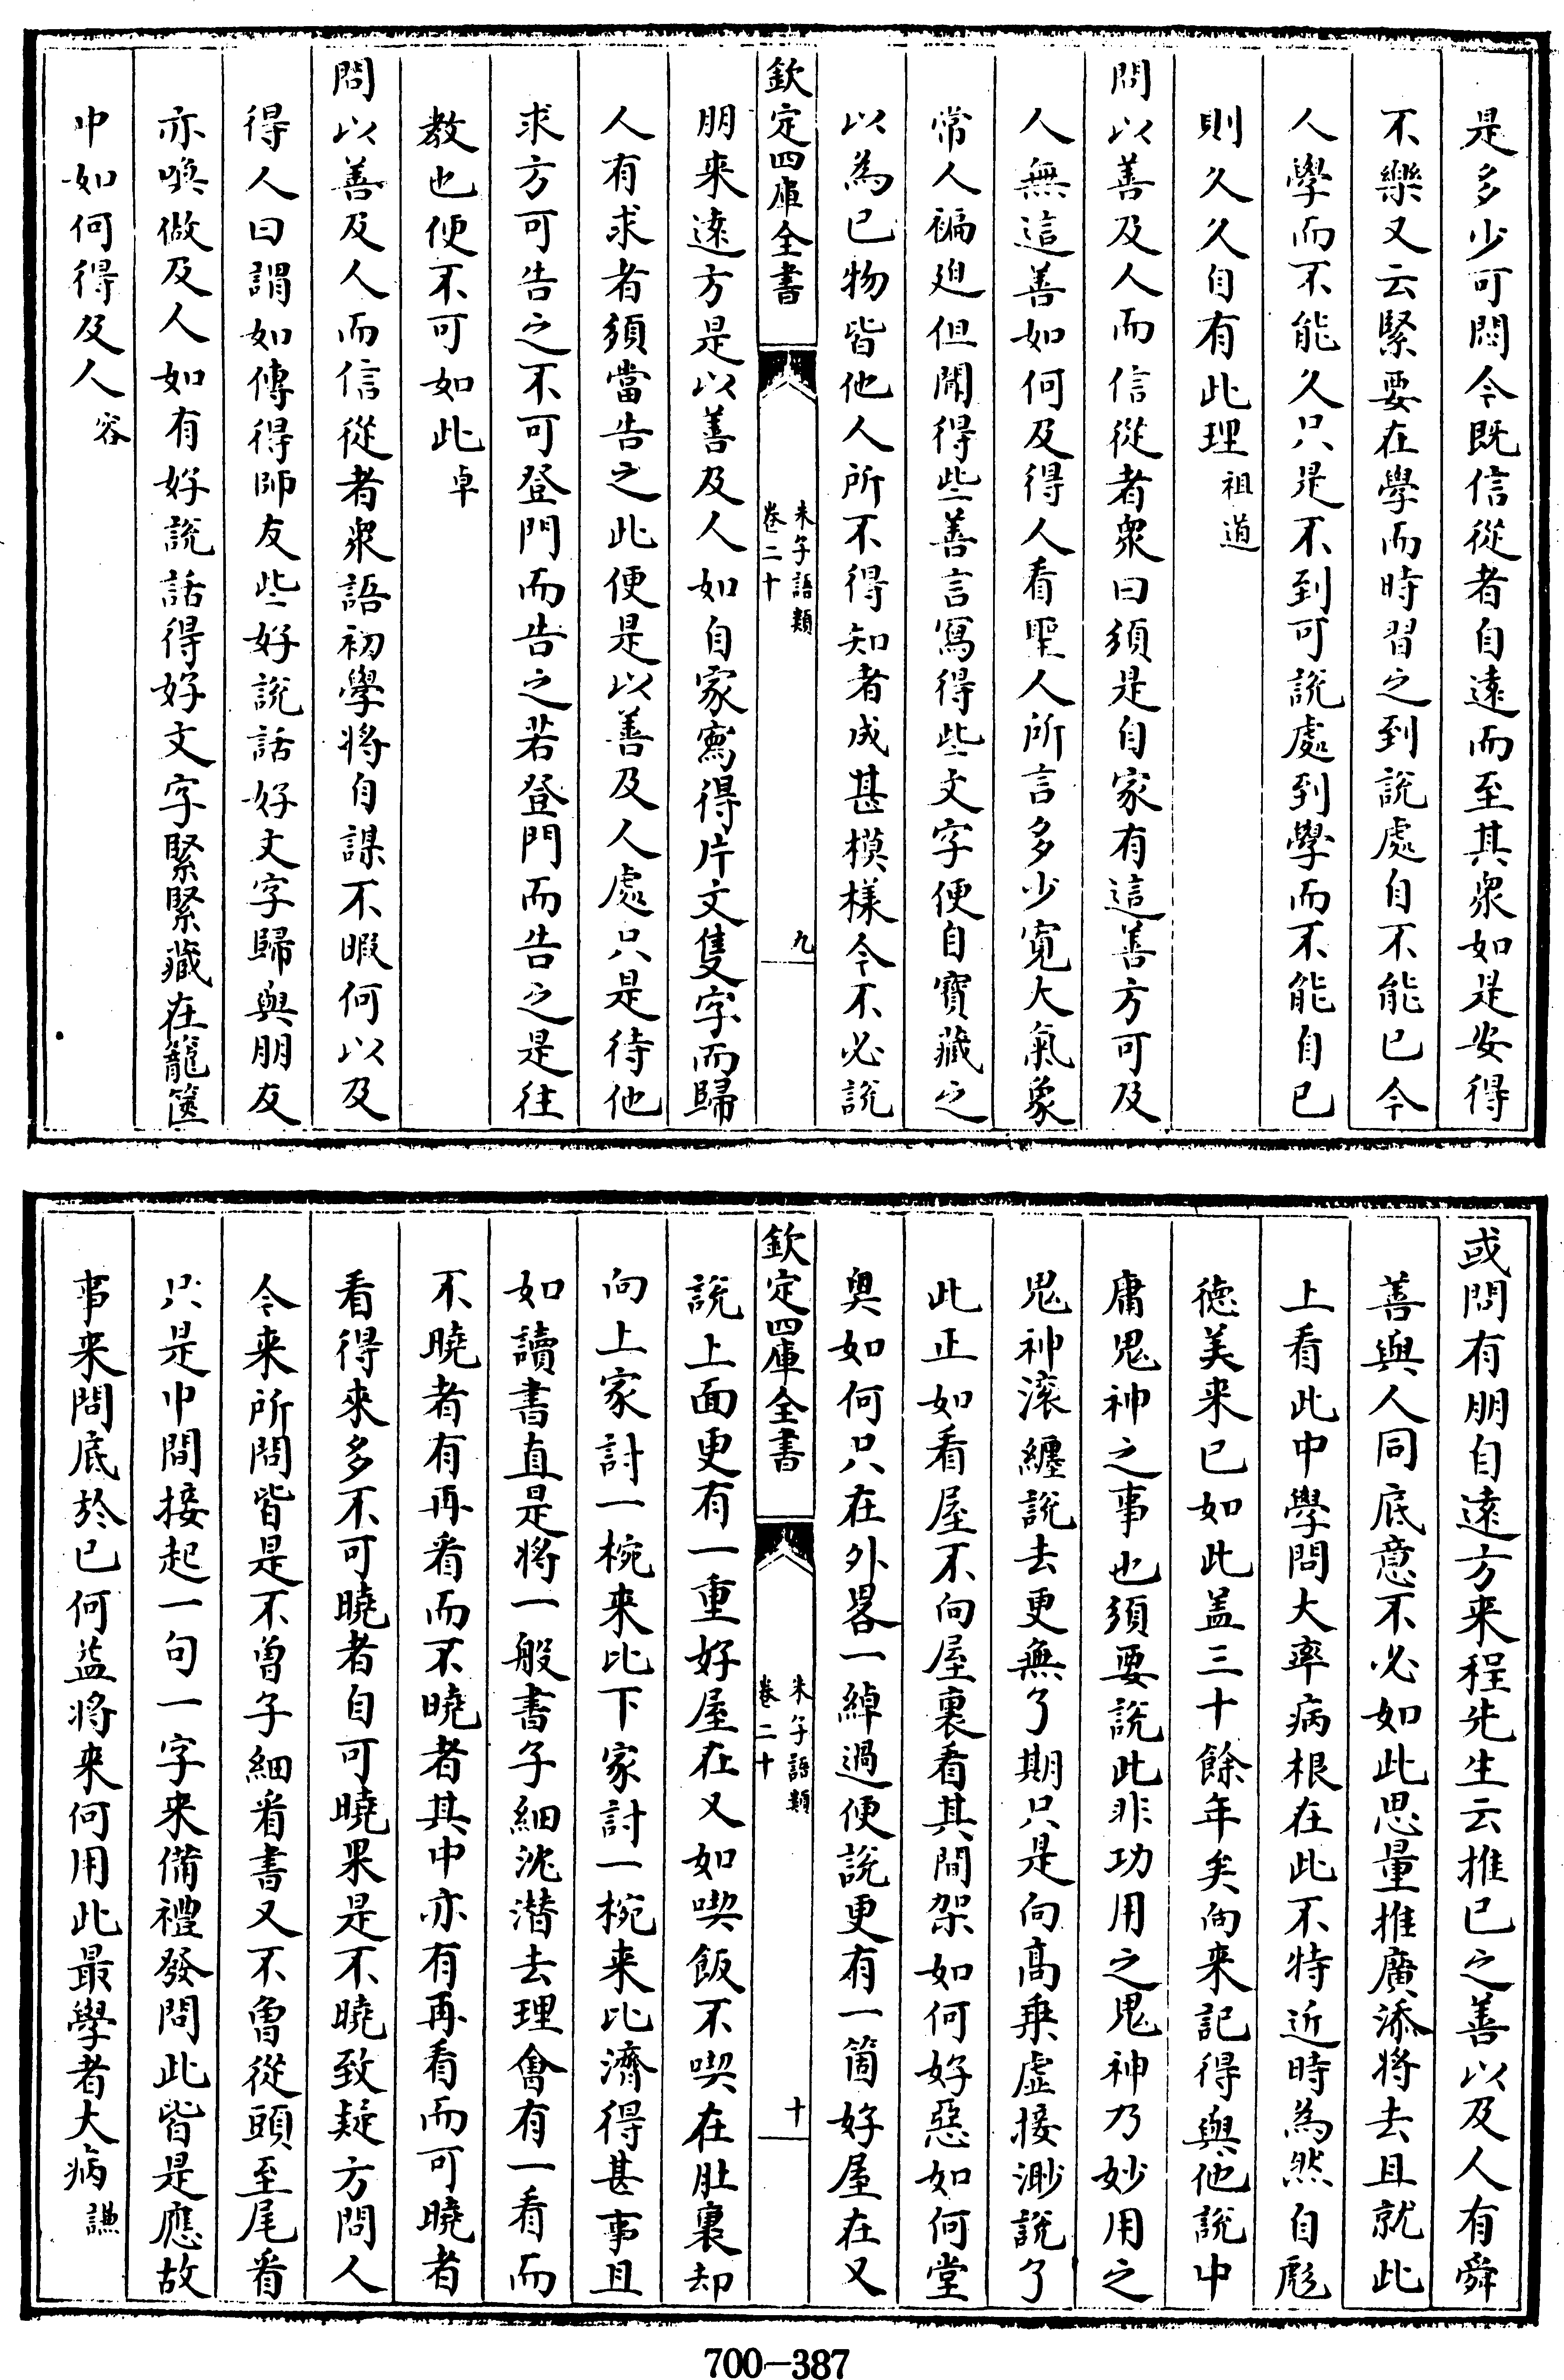 是多少可悶今既信從者自遠而至其衆如是安得
不樂又云緊要在學而時習之到說處自不能已今
人學而不能久只是不到可說處到學而不能自已
則久久自有此理祖道
問以善及人而信從者衆曰須是自家有這善方可及
人無這善如何及得人看聖人所言多少寛大氣象
常人褊迫但聞得些善言寫得些文字便自寶藏之
以為已物皆他人所不得知者成甚模樣今不必說
欽定四庫全書
朱子語類
卷二十
九
朋來逺方是以善及人如自家寫得片文隻字而歸
人有求者須當告之此便是以善及人處只是待他
求方可告之不可登門而告之若登門而告之是往
教也便不可如此卓
問以善及人而信從者衆語初學將自謀不暇何以及
得人曰謂如傳得師友些好說話好文字歸與朋友
亦喚做及人如有好說話得好文字緊緊藏在籠篋
中如何得及人容
或問有朋自遠方来程先生云推已之善以及人有舜
善與人同底意不必如此思量推廣添將去且就此
上看此中學問大率病根在此不特近時為然自彪
徳美来已如此盖三十餘年矣向来記得與他說中
庸鬼神之事也須要說此非功用之鬼神乃妙用之
鬼神滚纏說去更無了期只是向髙乗虚接渺說了
此正如看屋不向屋裏看其間架如何好惡如何堂
奥如何只在外畧一綽過便說更有一箇好屋在又
欽定四庫全書
朱子語類
卷二十
十
說上面更有一重好屋在又如喫飯不喫在肚裏却
向上家討一椀来比下家討一椀来比濟得甚事且
如讀書直是將一般書子細沈潜去理㑹有一看而
不曉者有再看而不曉者其中亦有再看而可曉者
看得來多不可曉者自可曉果是不曉致疑方問人
今来所問皆是不曾子細看書又不曾從頭至尾看
只是中間接起一句一字来備禮發問此皆是應故
事来問底於已何益將来何用此最學者大病謙
700-387